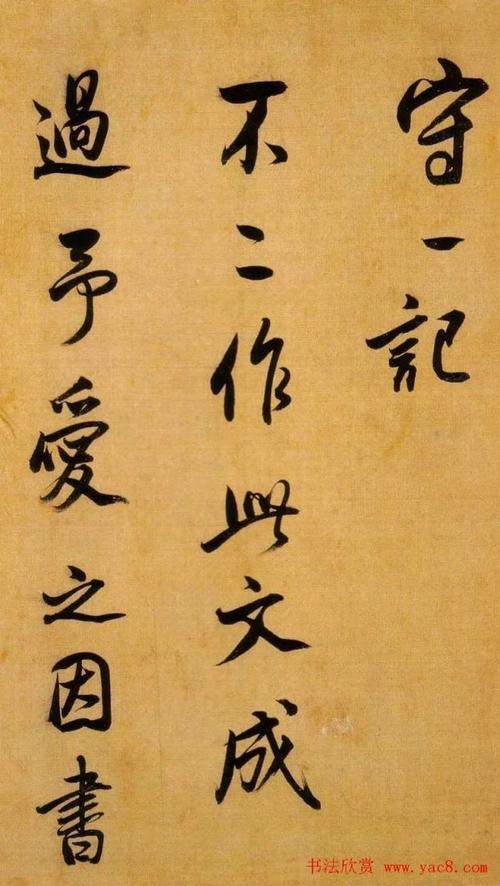 守一記
不二作此文成
過予愛之因書
书法欣赏 www.yac8.com